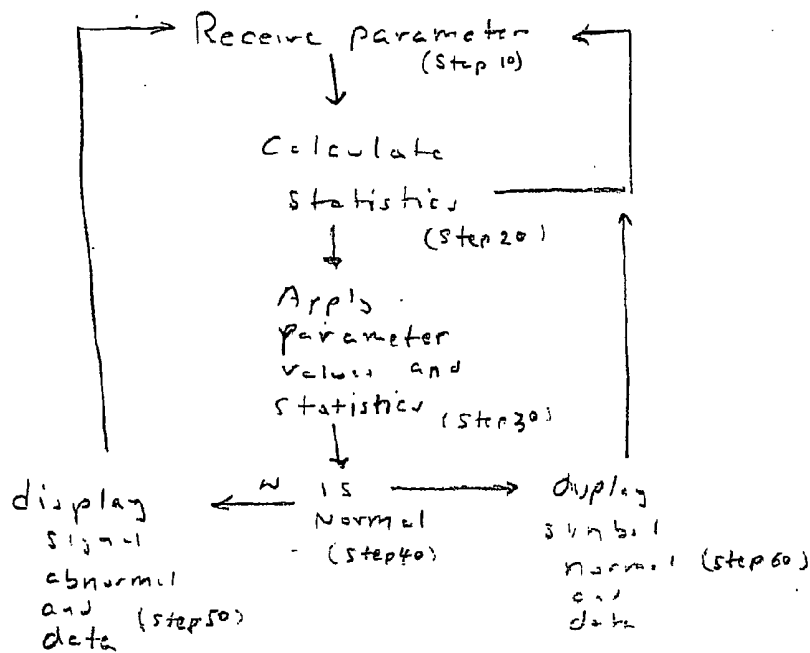 Receive parameter
(Step 10)
Calculate
Statistics
(Step 20)
Apply
parameter
values and
statistics (Step 30)
display
signal
abnormal
and
data (Step 50)
N
IS
Normal
(Step 40)
display
symbol
normal (Step 60)
and
data